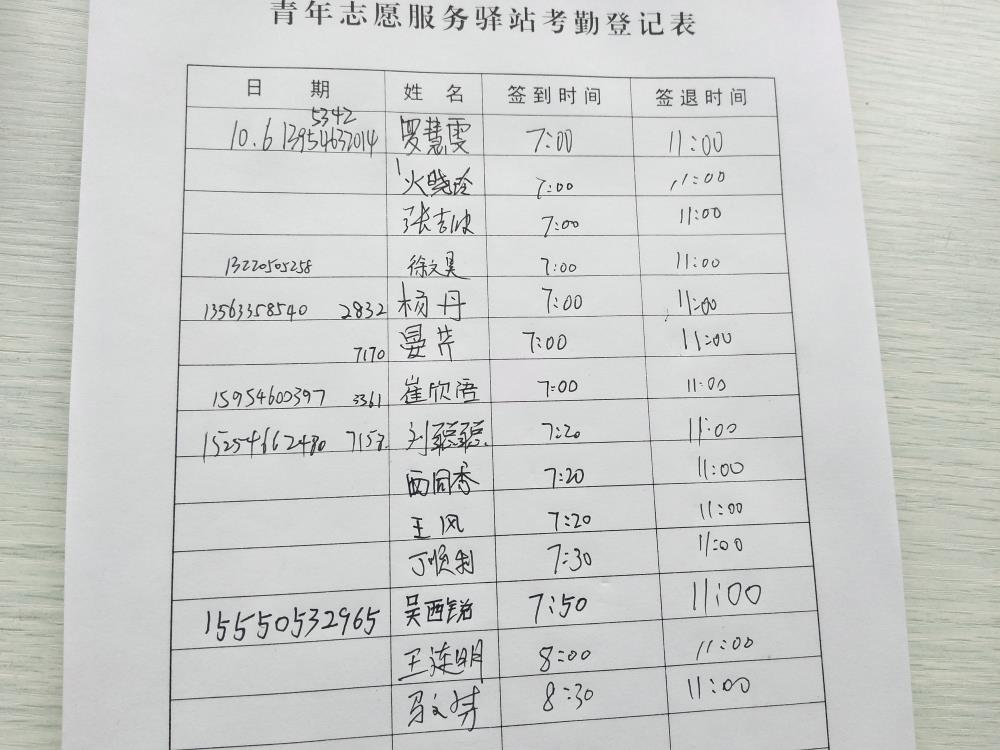 青年志愿服务驿站考勤登记表
日 期 姓 名 签到时间 签退时间
5342
10.6 13954632014 罗慧雯 7:00 11:00
火晓玲 7:00 11:00
张吉 7:00 11:00
13220505258 徐文昊 7:00 11:00
13563358540 2832 杨丹 7:00 11:00
7170 晏芹 7:00 11:00
15954600397 3361 崔欣语 7:00 11:00
15254662480 7158. 刘聪聪 7:20 11:00
西同秀 7:20 11:00
王风 7:20 11:00
丁顺利 7:30 11:00
15550532965 吴西锐 7:50 11:00
王连明 8:00 11:00
马文 8:30 11:00